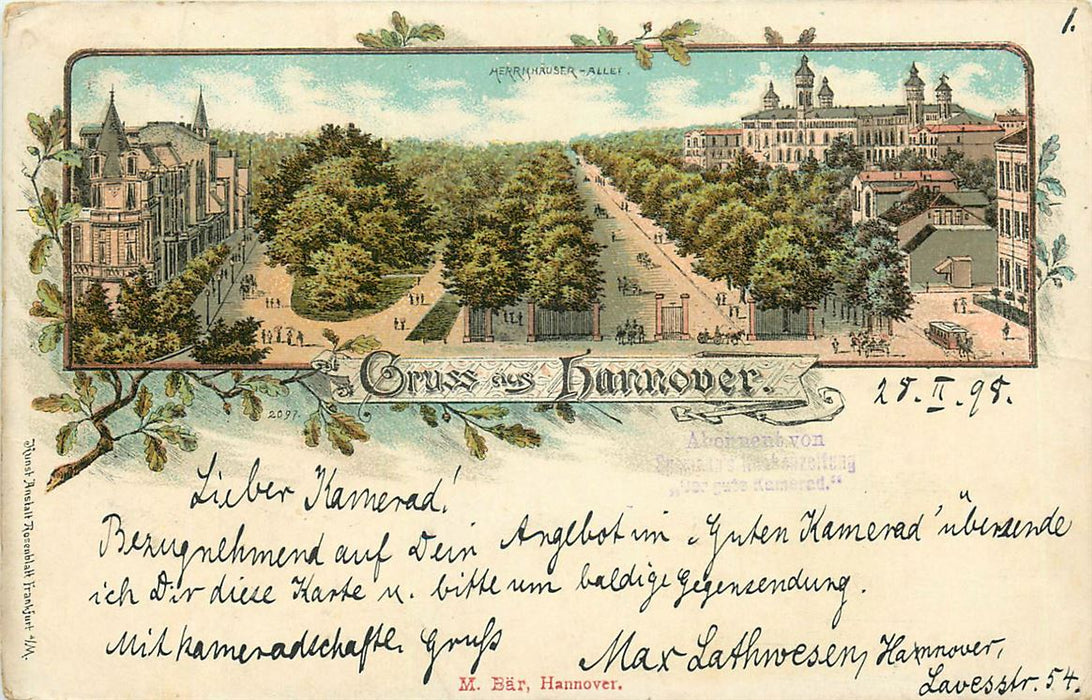 1.
HERRNHÄUSER-ALLEE.
Gruss aus Hannover.
2097.
28.II.98.
Abonnent von
Spemann's Knabenzeitung
„Der gute Kamerad.“
Lieber Kamerad!
Bezugnehmend auf Dein Angebot im „Guten Kamerad" übersende
ich Dir diese Karte u. bitte um baldige Gegensendung.
Mit kameradschaftl. Gruß
Max Lathwesen, Hannover,
Lavesstr. 54.
M. Bär, Hannover.
Kunst Anstalt Rosenblatt Frankfurt a/M.